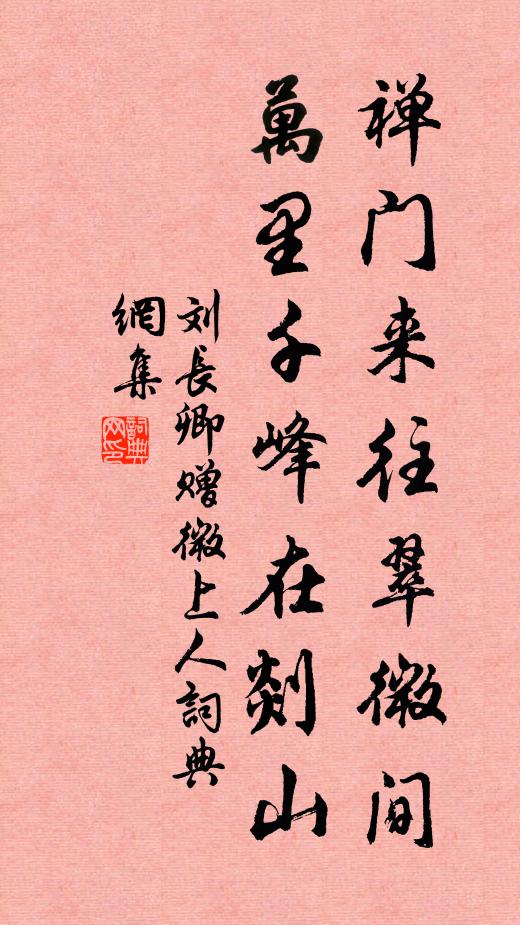 禅门来往翠微间
萬里千峰在剡山
刘長卿赠微上人詞典
網集
詞典网印